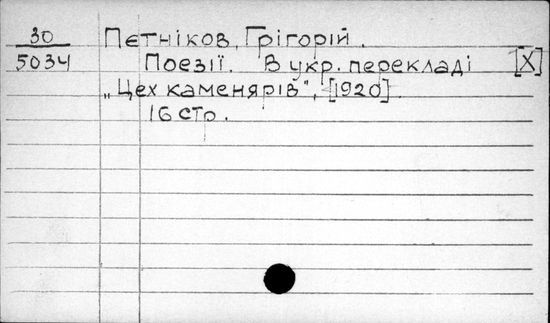 30 Пєтніков, Грігорій.
5034 Поезії. В укр. перекладі [X]
„Цех каменярів", [1920].
16 стр.